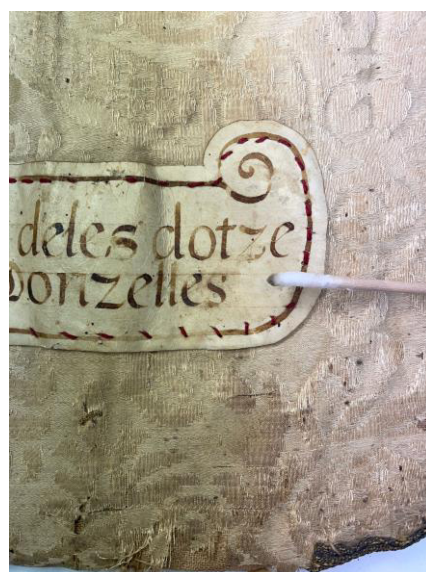 deles dotze
Donzelles